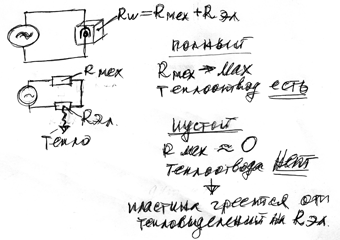 Rш = Rмех + Rэл
Rмех
Rэл.
Тепло
полный
Rмех → Max
Теплоотвод есть
пустой
Rмех ≈ 0
Теплоотвода нет
пластина греется от
тепловыделения на Rэл.